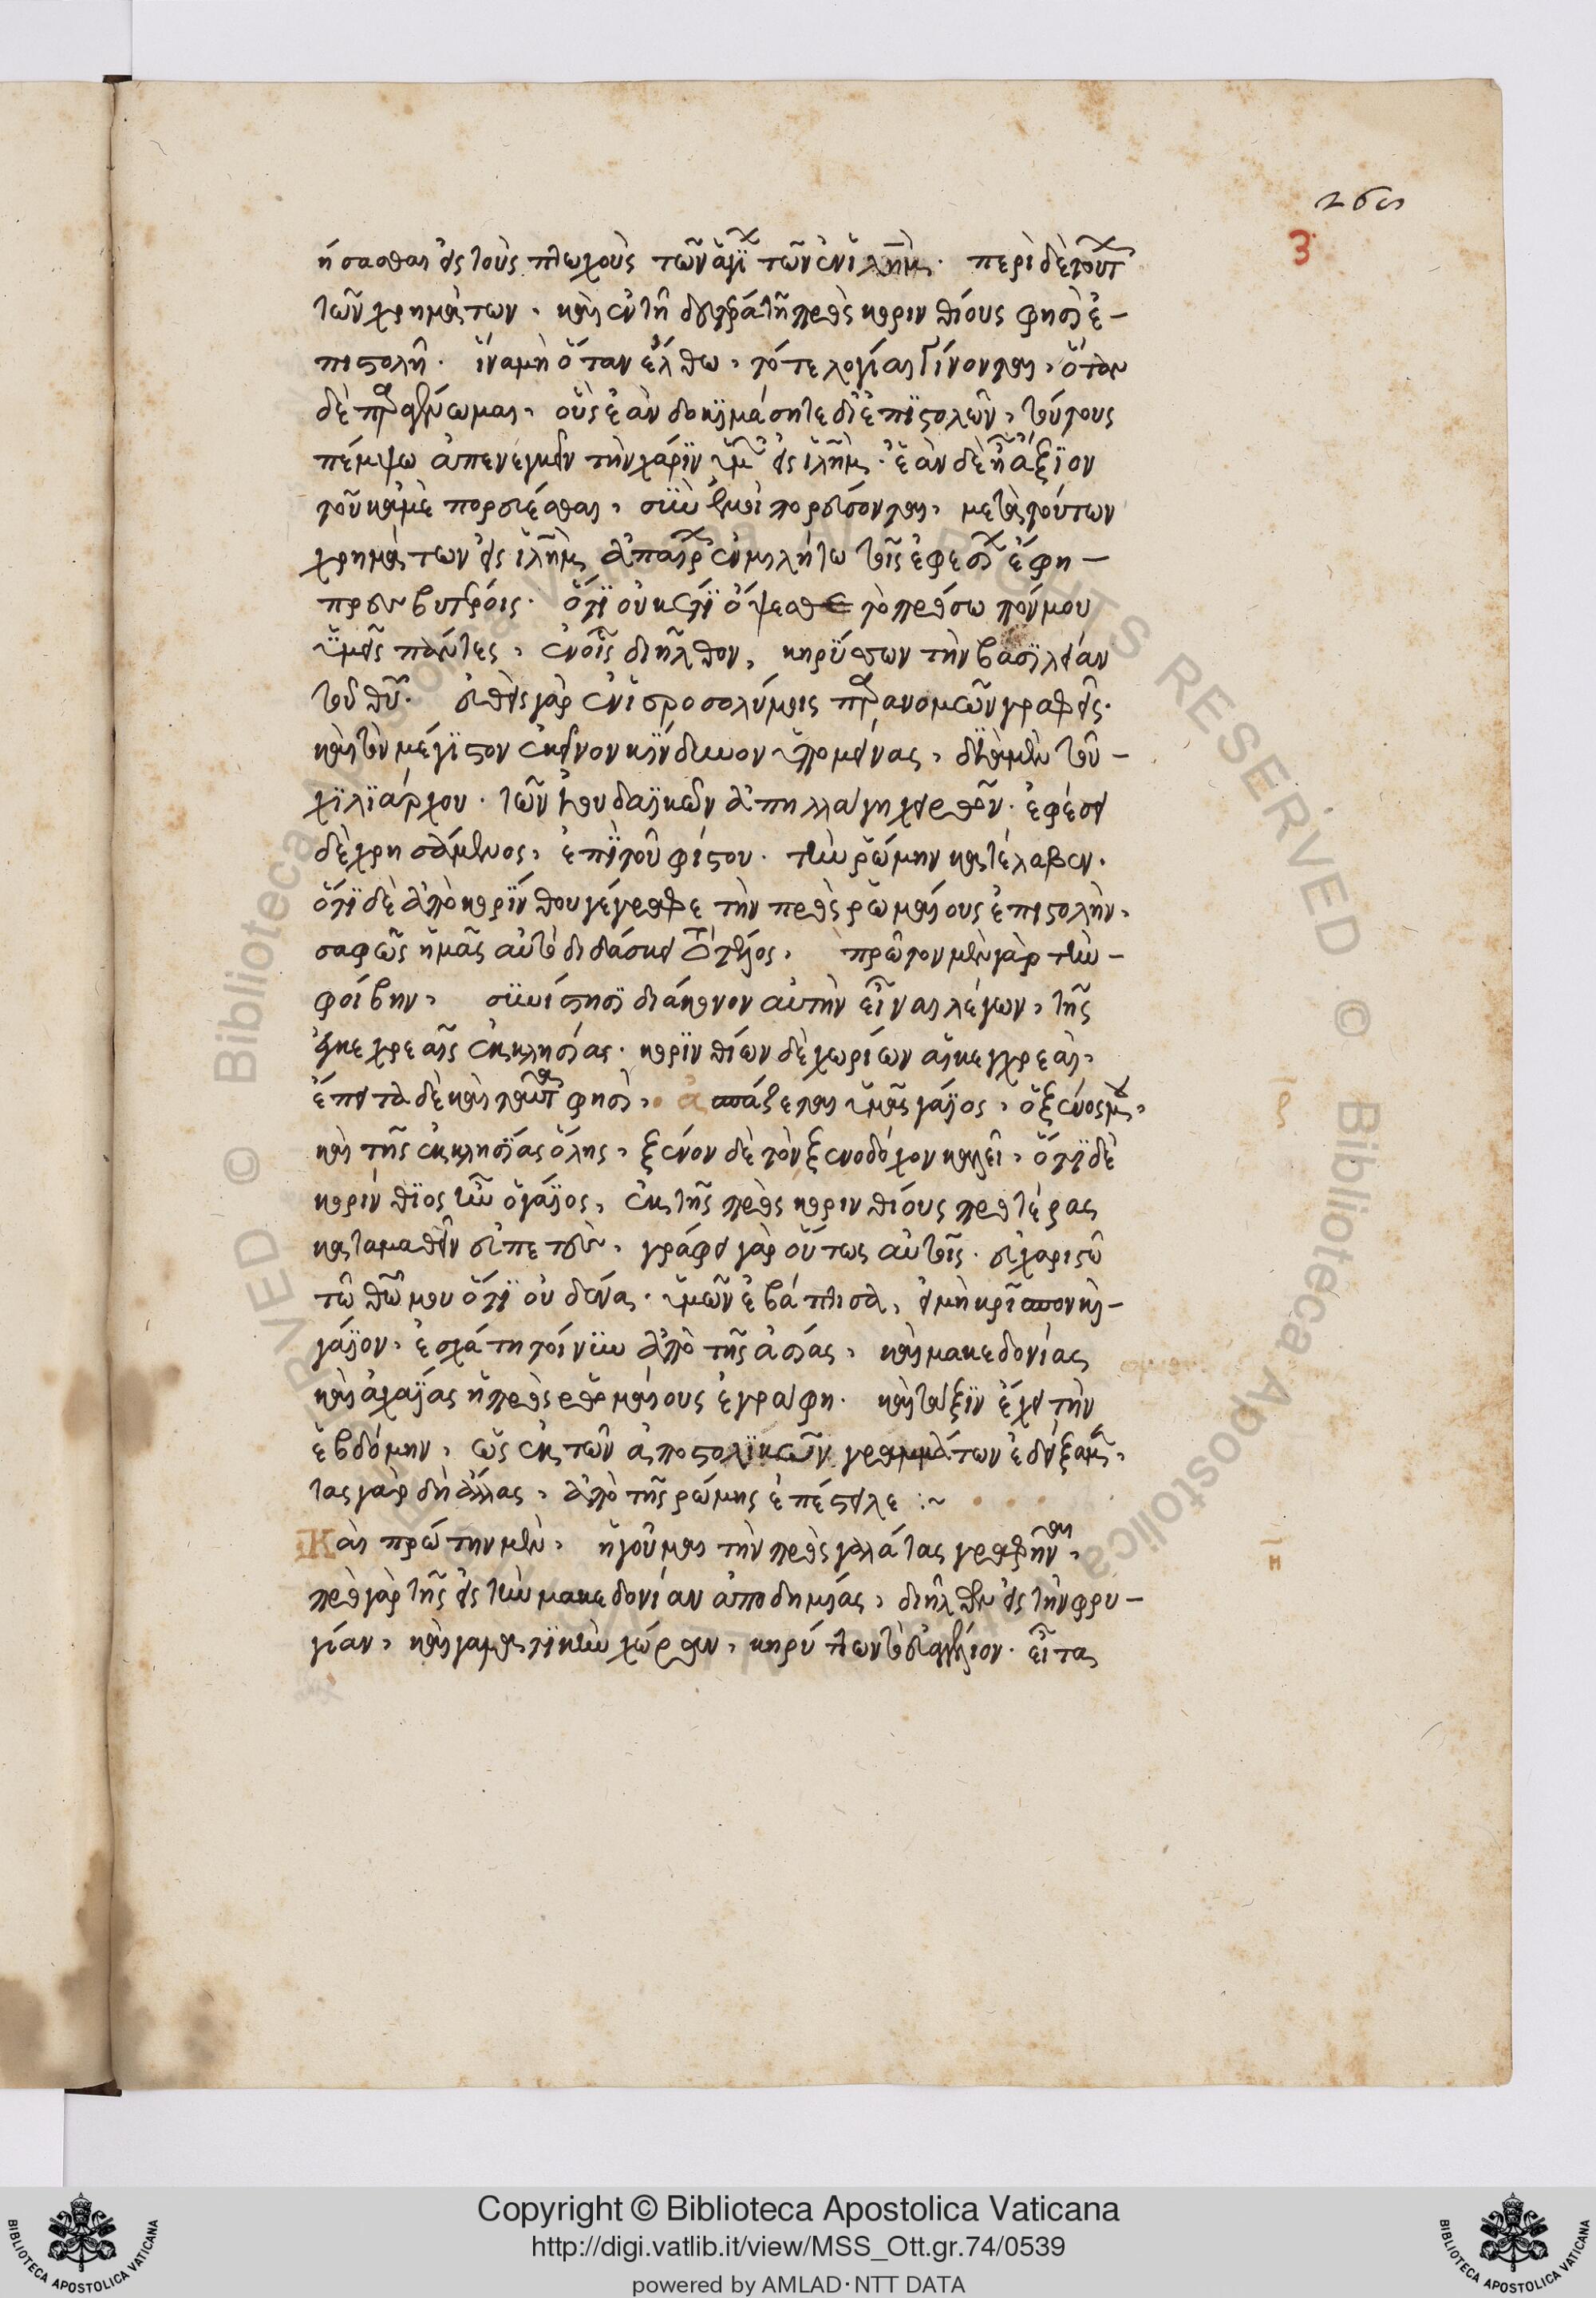 265
3
ήσασθαι εἰς τοὺς πτωχοὺς τῶν ἁγί τῶν ἐν ἱλῆμ. περὶ δὲ τούτ
τῶν χρημάτων. καὶ ἐν τῇ δευτέρα τῇ πρὸς κορινθίους φησὶ ἐ-
πιστολῇ. ἵνα μὴ ὅταν ἔλθω, τότε λογίαι γίνονται, ὅταν
δὲ παραγένωμαι, οὓς ἐὰν δοκιμάσητε δι' ἐπιστολῶν, τούτους
πέμψω ἀπενεγκεῖν τὴν χάριν ὑμῶν εἰς ἱλῆμ. ἐὰν δὲ ἦ ἄξιον
τοῦ κἀμὲ πορεύεσθαι, σὺν ἐμοὶ πορεύσονται, μετὰ τούτων
χρημάτων εἰς ἱλῆμ ἀπαίρ ἐν μιλήτω τοῖς ἐφεσί ἔφη-
πρεσβυτέροις. ὅτι οὐκ ἔτι ὄψεσθε τὸ πρόσωπόν μου
ὑμεῖς πάντες, ἐν οἷς διῆλθον, κηρύσσων τὴν βασιλείαν
τοῦ θυ. εὐθεὶς γὰρ ἐν ἱεροσολύμοις παρανομῶν γραφεὶς.
καὶ τὸν μέγιστον ἐκεῖνον κίνδυνον ὑπομείνας, διὰ μὲν τοῦ-
χιλιάρχου. τῶν ἰουδαϊκῶν ἀπηλλάγη χειρῶν. ἐφέσει
δὲ χρησάμενος, ἐπὶ τοῦ φίστου. τὴν ῥώμην κατέλαβεν.
ὅτι δὲ ἀπὸ κορίνθου γέγραφε τὴν πρὸς ῥωμαίους ἐπιστολὴν,
σαφῶς ἡμᾶς αὐτὸ διδάσκει τὸ τέλος, πρῶτον μὲν γὰρ τὴν-
φοίβην, συνίστησι διάκονον αὐτὴν εἶναι λέγων, τῆς
ἐν κεχρεαῖς ἐκκλησίας. κορινθίων δὲ χωρίων αἱ κεγχρεαὶ,
ἔπειτα δὲ καὶ ταῦτα φησὶ, ἀσπάζεται ὑμᾶς γάϊος, ὁ ξένος μου,
καὶ τῆς ἐκκλησίας ὅλης, ξένον δὲ τὸν ξενοδόχον καλεῖ, ὅτι δὲ
κορίνθιος ἦν ὁ γάϊος, ἐκ τῆς πρὸς κορινθίους προτέρας
καταμαθεῖν εὐπετὲς, γράφει γὰρ οὕτως αὐτοῖς. εὐχαριστῶ
τῶ θῶ μου ὅτι οὐδένα. ὑμῶν ἐβάπτισα, εἰ μὴ κρίσπον καὶ-
γάϊον, ἐσχάτη τοίνυν ἀπὸ τῆς ἀσίας, καὶ μακεδονίας
καὶ ἀχαΐας ἡ πρὸς ῥωμαίους ἐγράφη. καὶ τάξιν ἔχει τὴν
ἑβδόμην, ὡς ἐκ τῶν ἀποστολικῶν γραμμάτων ἐδείξαμεν,
τας γὰρ δὴ ἄλλας, ἀπὸ τῆς ῥώμης ἐπέστειλε :~
Καὶ πρώτην μὲν, ἡγοῦμαι τὴν πρὸς γαλάτας γραφῆναι,
πρὸ γὰρ τῆς εἰς τὴν μακεδονίαν ἀποδημίας, διῆλθεν εἰς τὴν φρυ-
γίαν, καὶ γαλατικὴν χώραν, κηρύττων τὸ εὐαγγέλιον. εἶτα
Copyright © Biblioteca Apostolica Vaticana
http://digi.vatlib.it/view/MSS_Ott.gr.74/0539
powered by AMLAD·NTT DATA